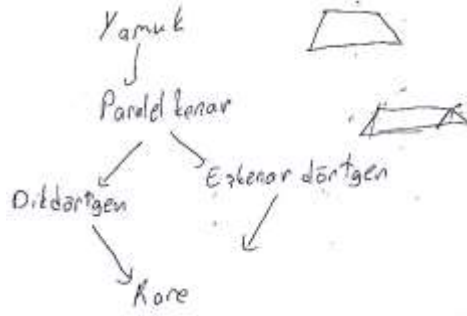 Yamuk
Paralel kenar
Dikdörtgen
Eşkenar dörtgen
Kare